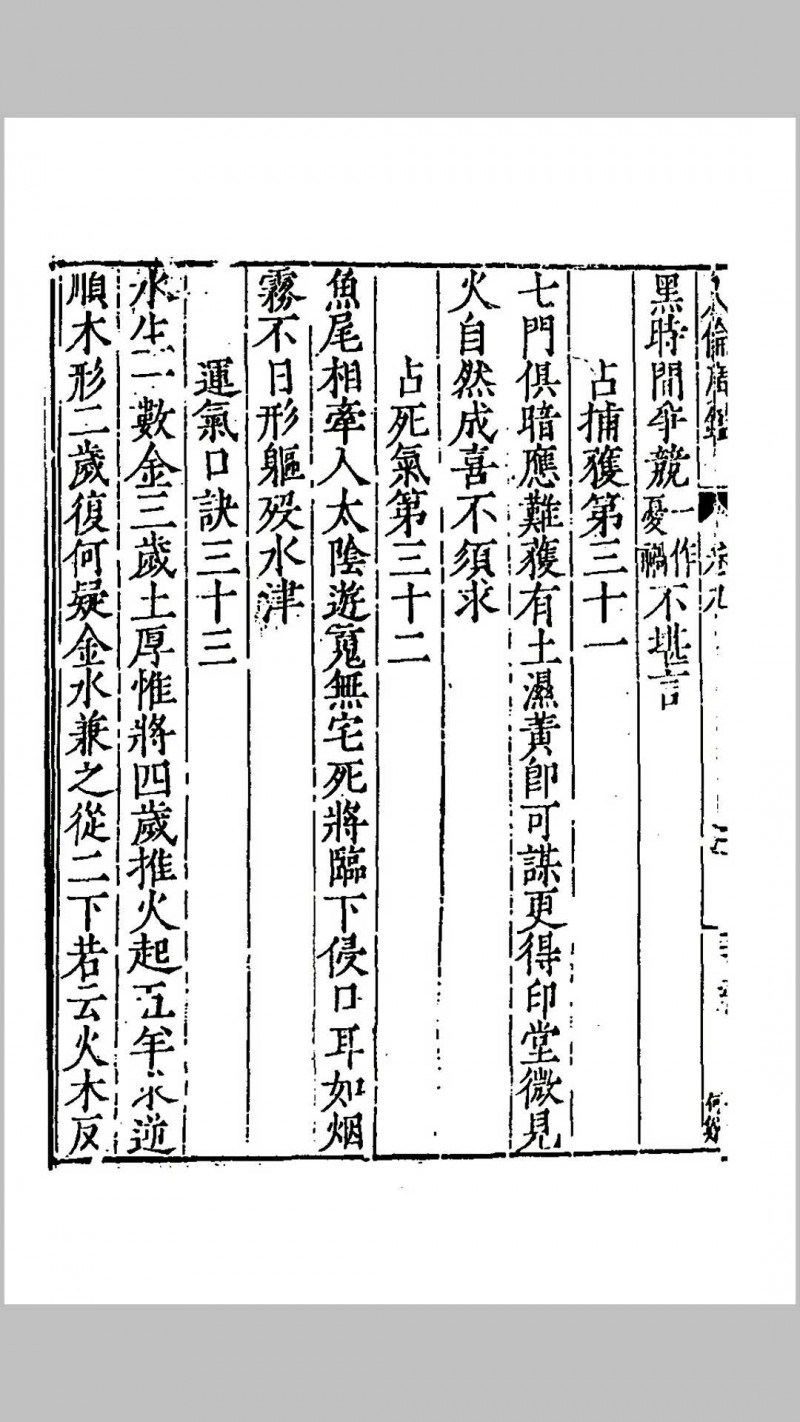 人倫廣鑑 卷九
黑時間爭競一作憂禍不堪言
占捕獲第三十一
七門俱暗應難獲有土濕黃卽可謀更得印堂微見
火自然成喜不須求
占死氣第三十二
魚尾相牽入太陰遊䰟無宅死將臨下侵口耳如烟
霧不日形軀歿水津
運氣口訣三十三
水生一數金三歲土厚惟將四歲推火起五年求逆
順木形二歲復何疑金水兼之從二下若云火木反